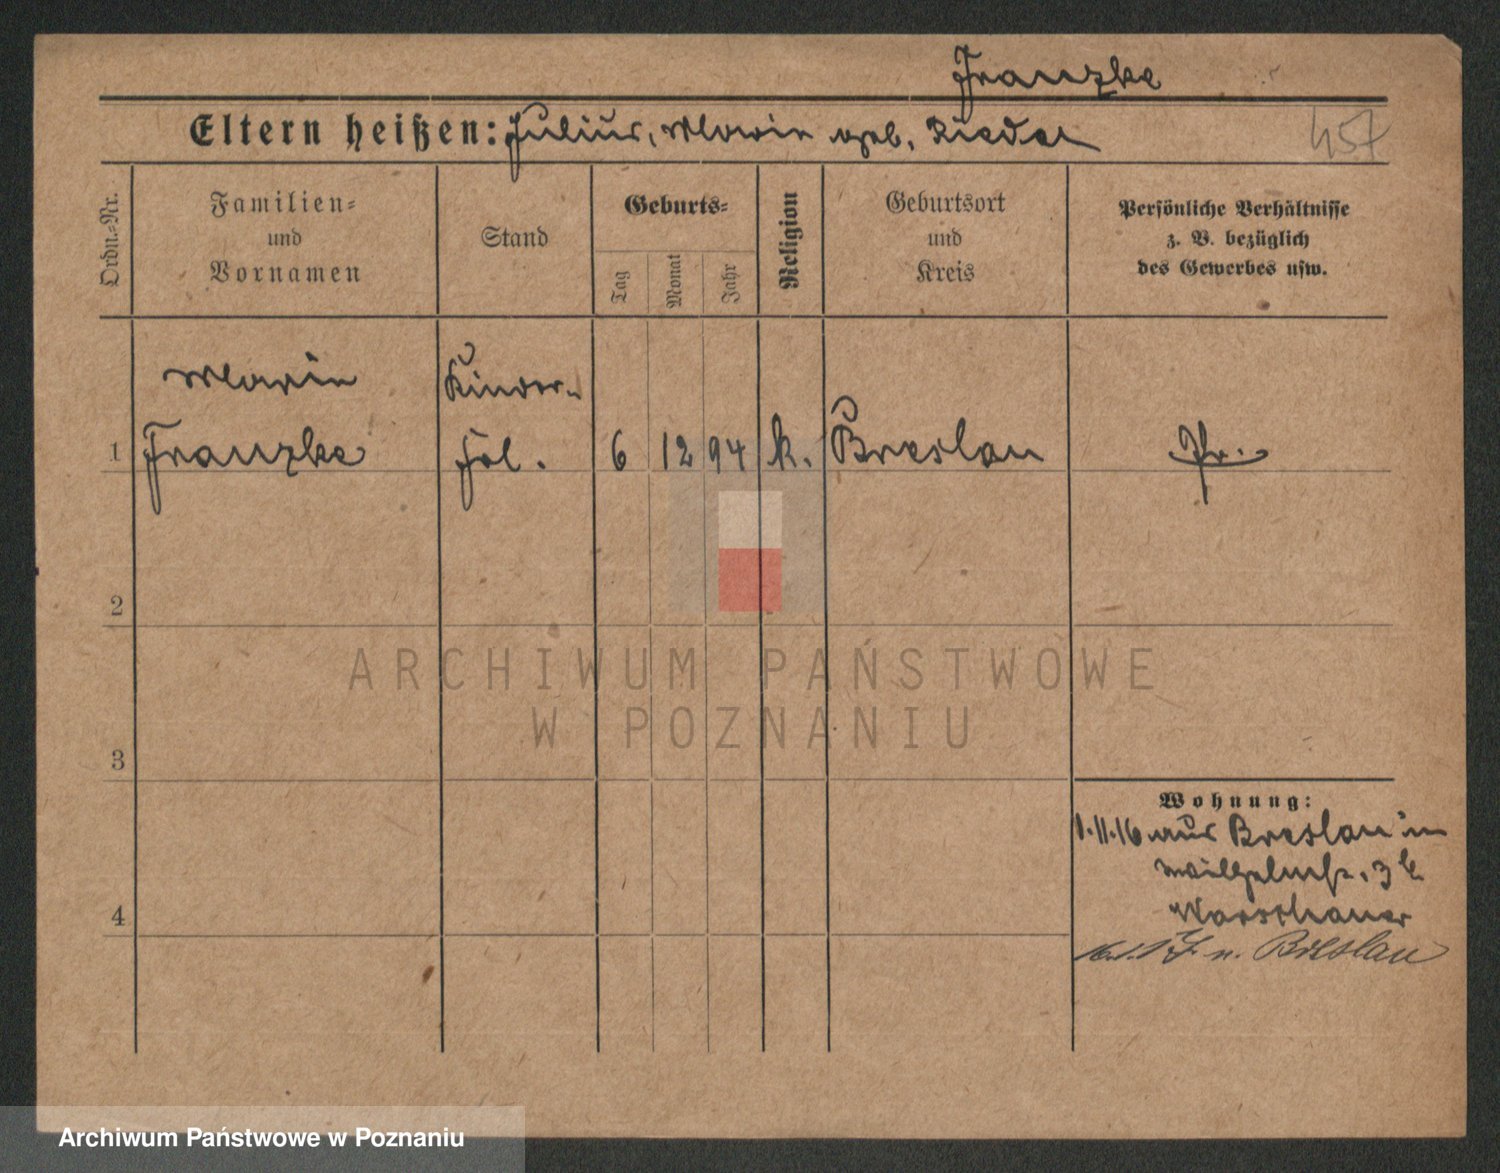 Franzke
Eltern heißen: Julius, Marie geb. Riedel
457
Ordn.-Nr.
Familien-
und
Vornamen
Stand
Geburts-
Tag
Monat
Jahr
Religion
Geburtsort
und
Kreis
Persönliche Verhältnisse
z. B. bezüglich
des Gewerbes usw.
Marie Kinder-
1 Franzke frl. 6 12 94 k. Breslau Pr.
2
ARCHIWUM PAŃSTWOWE
W POZNANIU
3
Wohnung:
1.11.16 aus Breslau in
Wilhelmstr. 3 b
Warschauer
16.1.17 n. Breslau
4
Archiwum Państwowe w Poznaniu